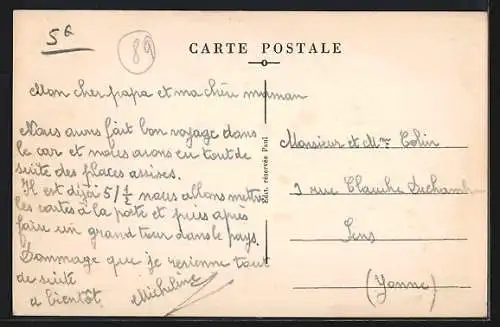 5 €
89
CARTE POSTALE
Mon cher papa et ma chère maman
Nous avons fait bon voyage dans
le car et nous avons eu tout de
suite des places assises.
Il est déjà 5/ 1/2 nous allons mettre
les cartes à la poste et puis apes
faire un grand tour dans le pays.
Dommage que je revienne tout
de suite
a bientôt Micheline
Edit. réservée Paul
Monsieur et Mme Colin
3 rue Claude Duchamb
Sens
(Yonne)